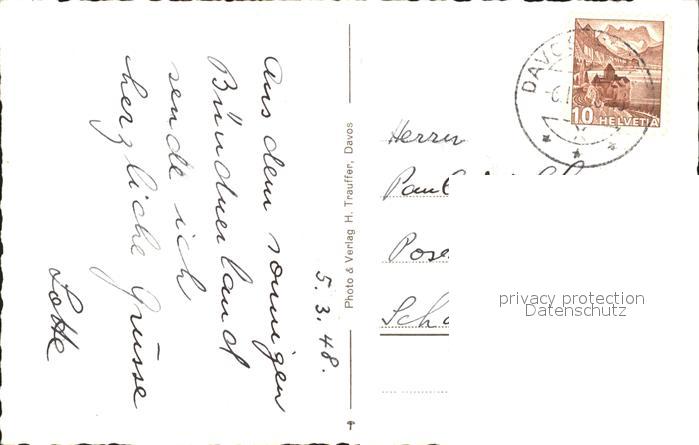 5. 3. 48.
Aus dem sonnigen
Bündnerland
sende ich
herzliche Grüsse
Lotte
Photo & Verlag H. Trauffer, Davos
DAVOS
10 HELVETIA
Herrn
Paul
privacy protection
Datenschutz